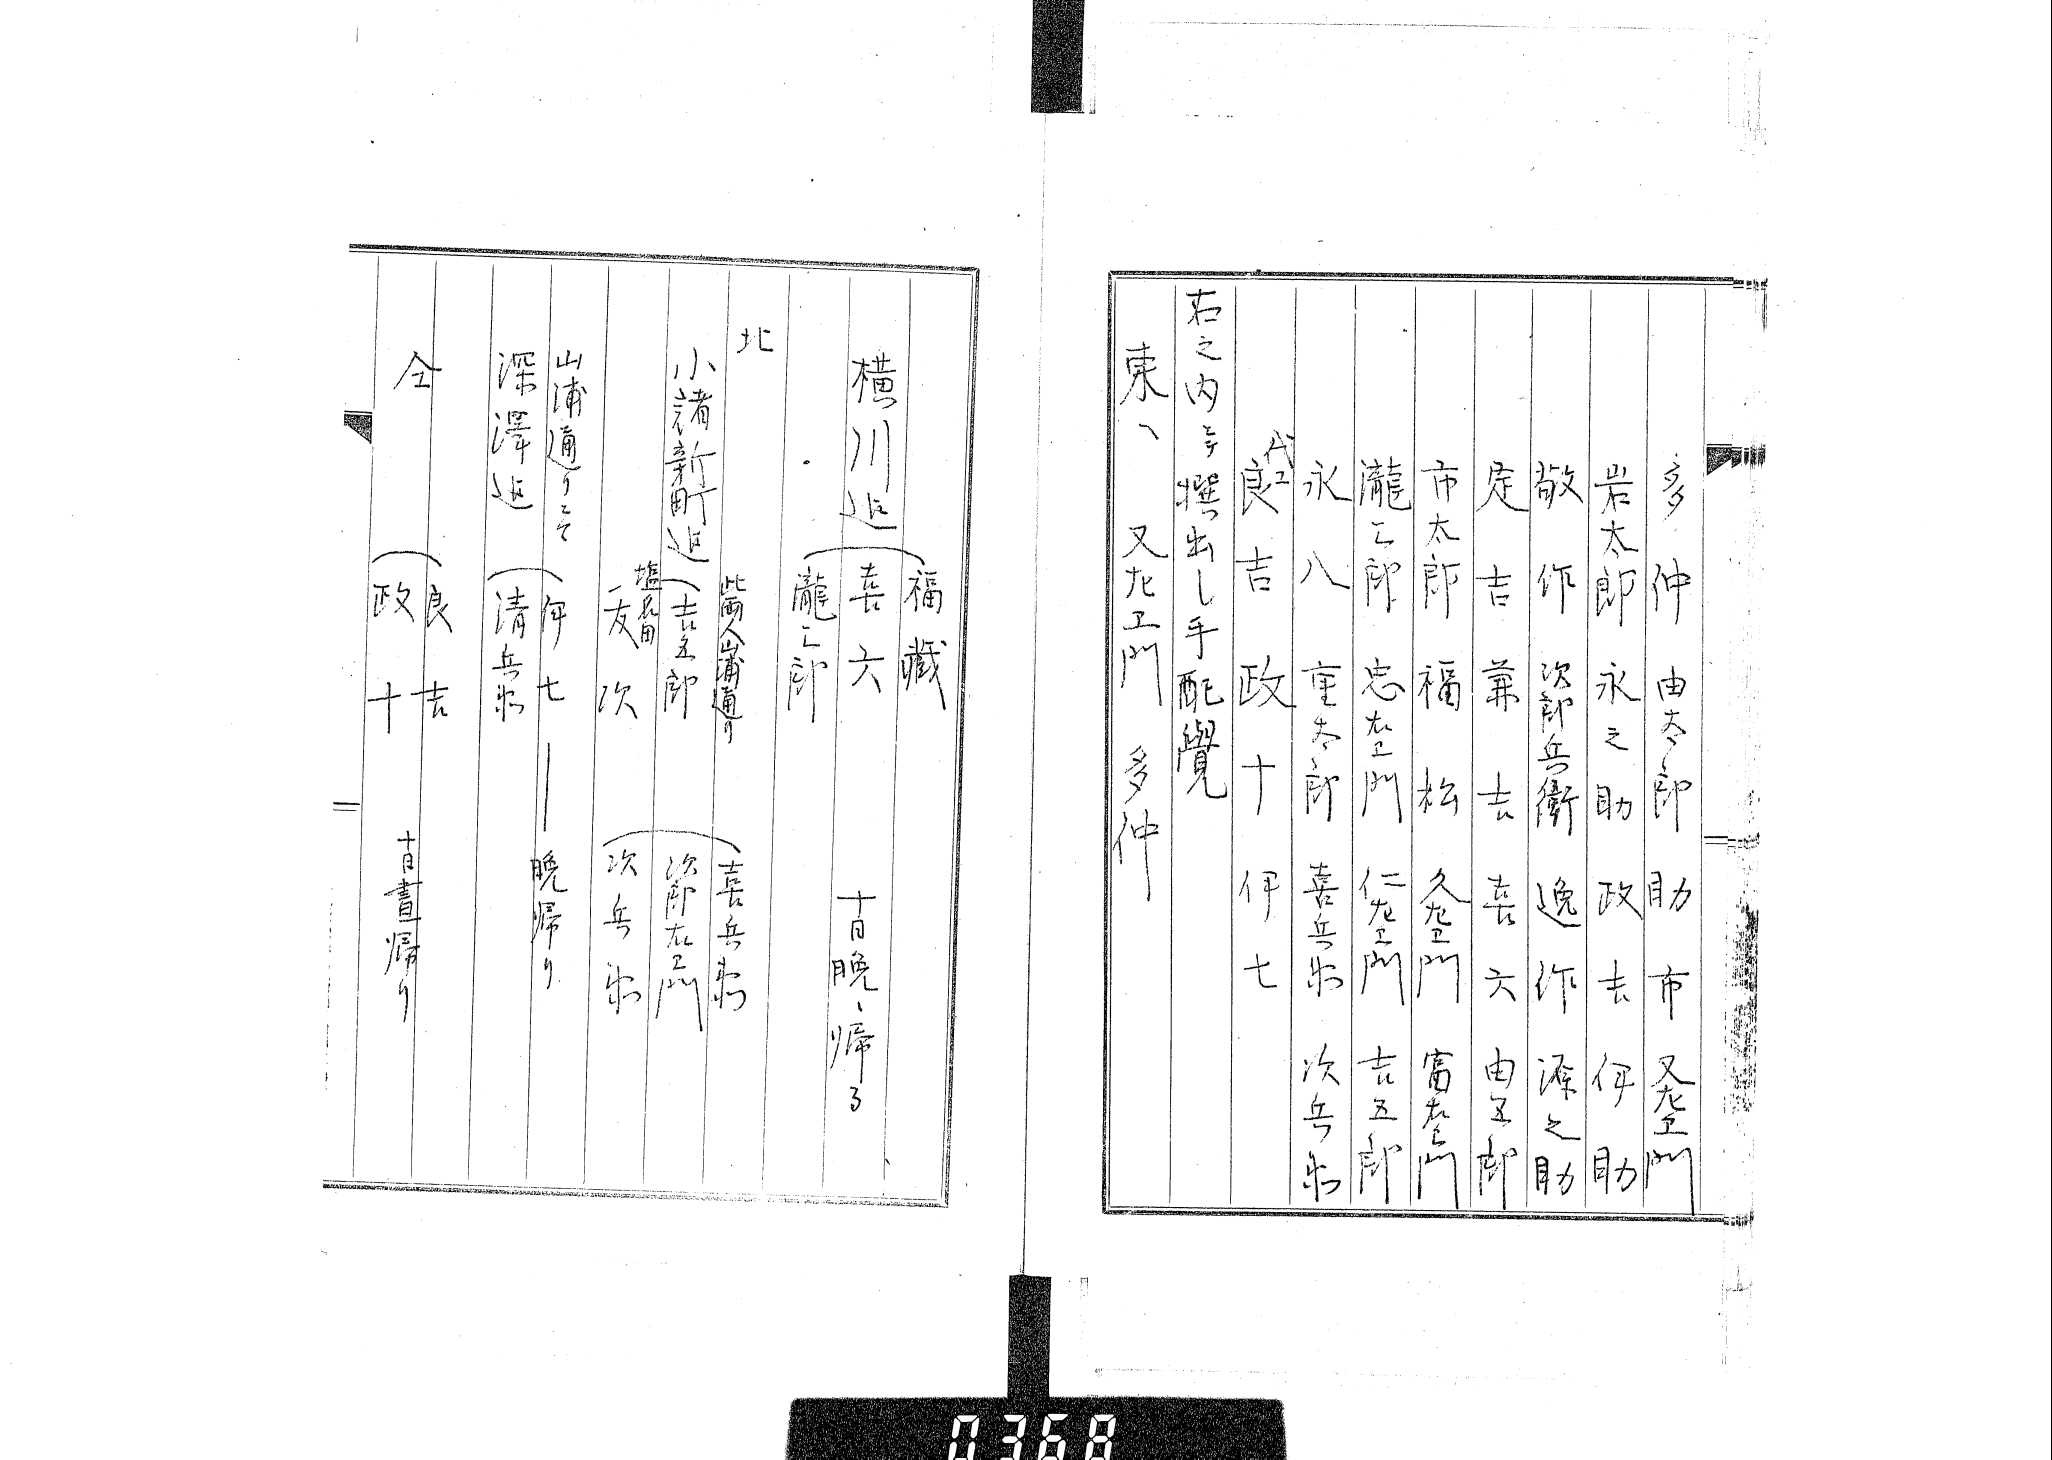 多仲 由太郎 助市 又左エ門
岩太郎 永之助 政吉 伊助
敬作 次郎兵衛 逸作 源之助
定吉 兼吉 喜六 由五郎
市太郎 福松 久左エ門 富右エ門
瀧三郎 忠右エ門 仁左エ門 吉五郎
永八 重太郎 喜兵衛 次兵衛
代ニ
良吉 政十 伊七
右之内ニテ撰出し手配覺
東ヘ 又左エ門 多仲
福藏
横川迠 喜六 十日晩ヘ帰る
瀧三郎
北
此両人山浦通り 喜兵衛
小諸新町迠 吉五郎 次郎右エ門
塩名田
友次 次兵衛
山浦通りニて 伊七 ― 晩帰り
深澤迠 清兵衛
良吉
仝 十日晝帰り
政十
0368